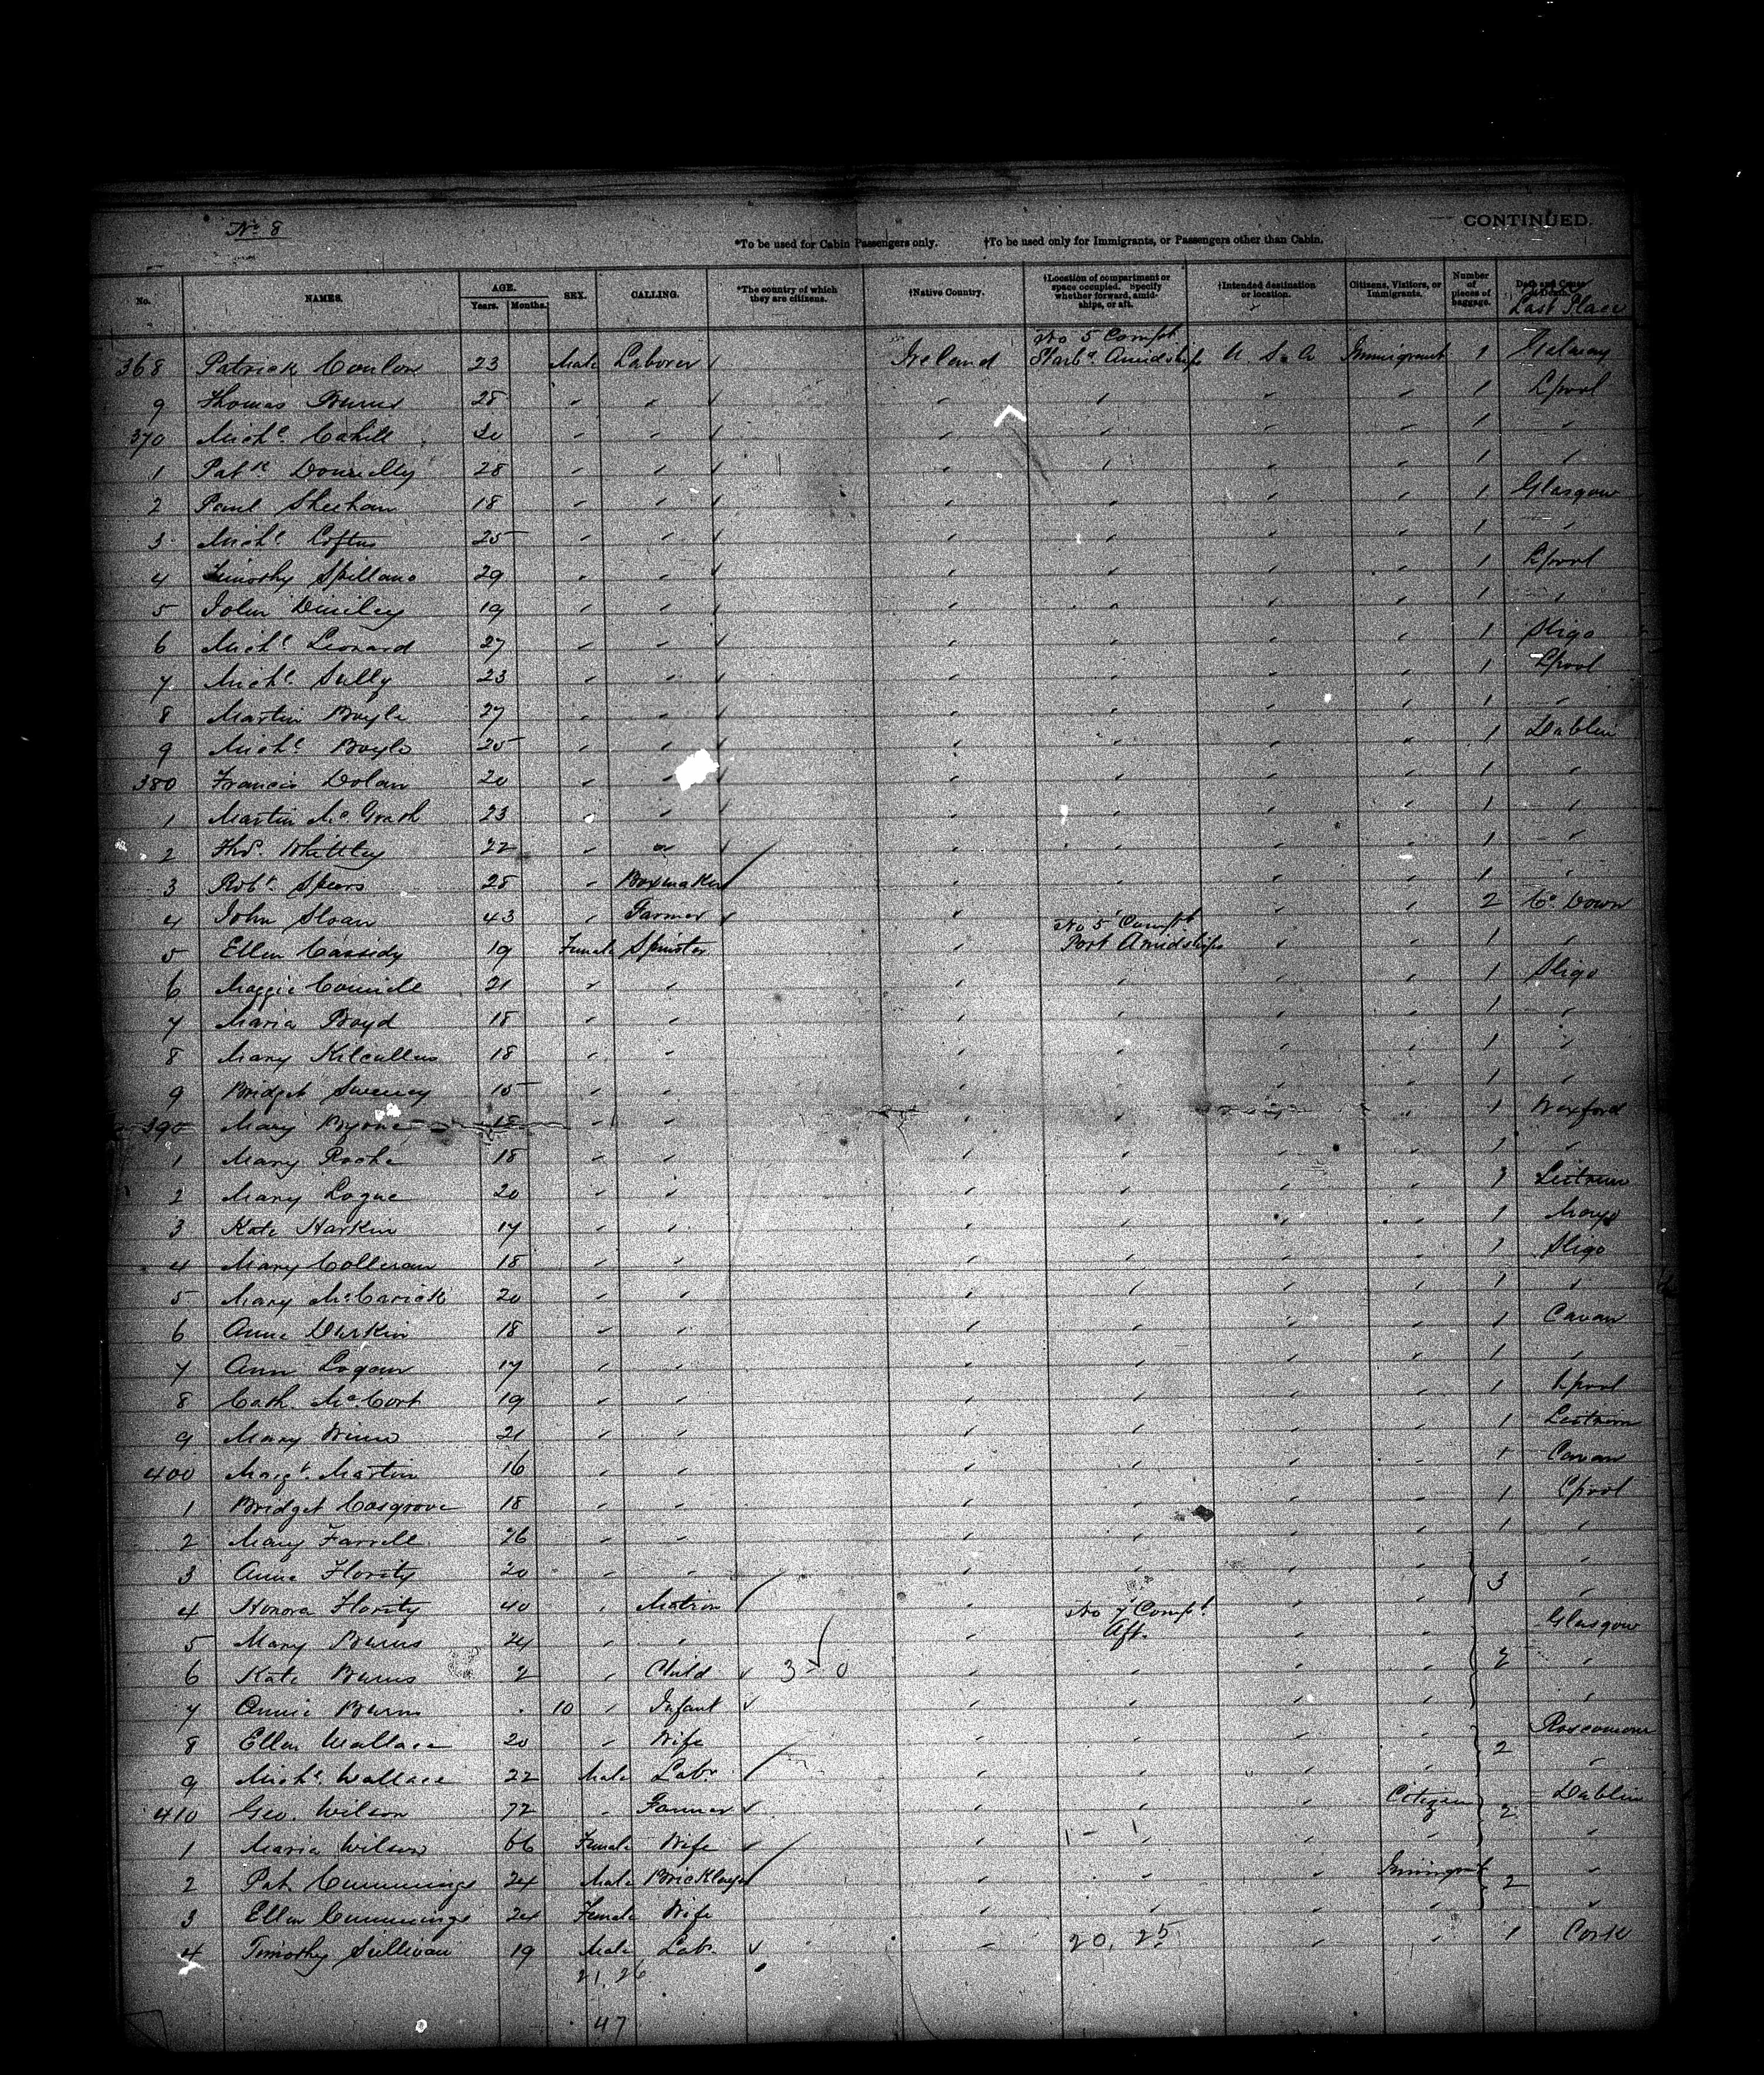 No 8
CONTINUED.
*To be used for Cabin Passengers only. †To be used only for Immigrants, or Passengers other than Cabin.
No. NAMES. AGE. Years. Months. SEX. CALLING. *The country of which they are citizens. †Native Country. †Location of compartment or space occupied. Specify whether forward, amidships, or aft. †Intended destination or location. Citizens, Visitors, or Immigrants. Number of pieces of baggage. Date and Cause of Death. Last Place
No 5 Compt
368 Patrick Conlon 23 Male Laborer Ireland Starbd Amidships U. S. A Immigrant 1 Galway
9 Thomas Burns 28 " " " " " " 1 Lpool
370 Michl Cahill 20 " " " " " " 1 "
1 Patk Donnelly 28 " " " " " " 1 "
2 Paul Sheehan 18 " " " " " " 1 Glasgow
3 Michl Loftus 25 " " " " " " 1 "
4 Timothy Spillane 29 " " " " " " 1 Lpool
5 John 19 " " " " " " 1 "
6 Michl Leonard 27 " " " " " " 1 Sligo
7 Michl Sully 23 " " " " " " 1 Lpool
8 Martin Boyle 27 " " " " " " 1 "
9 Michl Boyle 25 " " " " " " 1 Dublin
380 Francis Dolan 20 " " " " " " 1 "
1 Martin McGrath 23 " " " " " " 1 "
2 Thos. Whittley 22 " " " " " " 1 "
3 Robt Spears 28 " Boxmaker " " " " 1 "
4 John Sloan 43 " Farmer " " " 2 Co Down
No 5 Compt
5 Ellen Cassidy 19 Female Spinster " Port Amidships " " 1 "
6 Maggie 21 " " " " " " 1 Sligo
7 Maria Boyd 18 " " " " " " 1 "
8 Mary Kilcullen 18 " " " " " " 1 "
9 Bridget Sweeney 15 " " " " " " 1 "
390 Mary Byrne 18 " " " " " " 1 Wexford
1 Mary Roche 18 " " " " " " 1 "
2 Mary Logue 20 " " " " " " 1 Leitrim
3 Kate Harkin 17 " " " " " " 1 Mayo
4 Mary Colleran 18 " " " " " " 1 Sligo
5 Mary McCarick 20 " " " " " " 1 "
6 Anne Durkin 18 " " " " " " 1 Cavan
7 Ann Logan 17 " " " " " " 1 "
8 Cath. McCort 19 " " " " " " 1 Lpool
9 Mary 21 " " " " " " 1 Leitrim
400 Margt. Martin 16 " " " " " " 1 Cavan
1 Bridget Cosgrove 18 " " " " " " 1 Lpool
2 Mary Farrell 26 " " " " " " 1 "
3 Anne Hority 20 " " " " " " 3 "
4 Honora Hority 40 " Matron " " " "
No 7 Compt
5 Mary Burns 24 " " " Aft. " " Glasgow
6 Kate Burns 2 " Child 3 - 0 " " " " 2 "
7 Annie Burns 10 " Infant " " " " "
8 Ellen Wallace 20 " Wife " " " " 2 Roscommon
9 Michl. Wallace 22 Male Labr. " " " " "
410 Geo. Wilson 72 " Farmer " " " Citizen 2 Dublin
1 - 1
1 Maria Wilson 66 Female Wife " " " " "
2 Pat Cummings 24 Male Bricklayer " " " Immigrant 2 "
3 Ellen Cummings 24 Female Wife " " " " "
4 Timothy Sullivan 19 Male Labr. " 20, 25 " " 1 Cork
21, 26
47